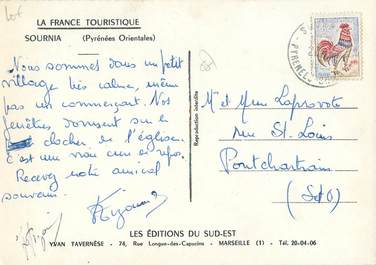 LA FRANCE TOURISTIQUE
SOURNIA (Pyrénées Orientales)
Nous sommes dans un petit
village très calme, même
pas un commerçant. Nos
fenêtres donnent sur le
clocher de l'église.
C'est une vraie cure de repos.
Recevez notre amical
souvenir.
Reproduction interdite
M et Mme Laprovote
rue St. Louis
Pontchartrain
(S et O)
LES ÉDITIONS DU SUD-EST
YVAN TAVERNÈSE - 74, Rue Longue-des-Capucins - MARSEILLE (1) - Tél. 20-04-06